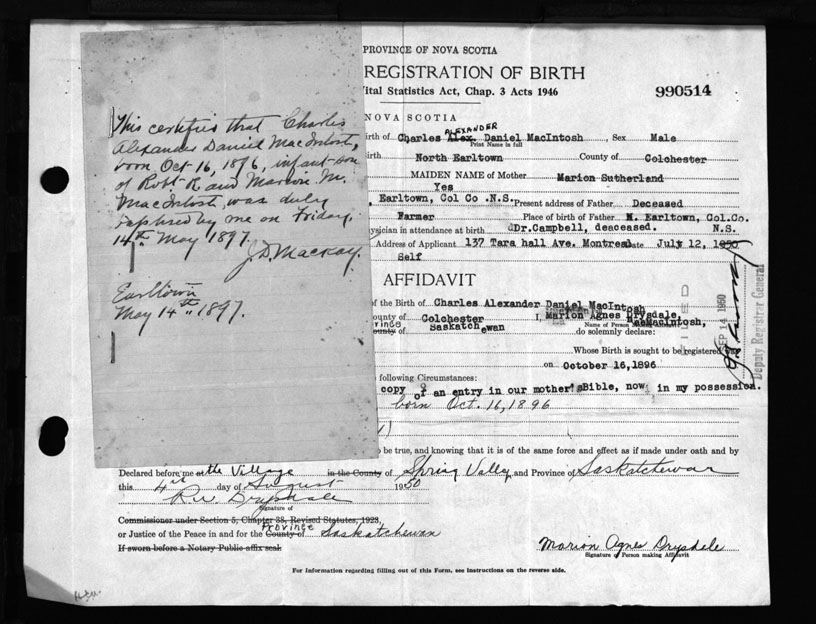 This certifies that Charles
Alexander Daniel MacIntosh,
born Oct 16, 1896, infant son
of Robt R. and Marion M.
MacIntosh was duly
baptised by me on Friday,
14th May 1897.
J.D. Mackay.
Earltown
May 14th 1897.
PROVINCE OF NOVA SCOTIA
REGISTRATION OF BIRTH
Vital Statistics Act, Chap. 3 Acts 1946
990514
NOVA SCOTIA
ALEXANDER
Birth of Charles Alex. Daniel MacIntosh , Sex Male
Print Name in full
Birth North Earltown County of Colchester
MAIDEN NAME of Mother Marion Sutherland
Yes
, Earltown, Col Co .N.S. Present address of Father Deceased
Farmer Place of birth of Father N. Earltown, Col.Co.
Physician in attendance at birth Dr.Campbell, deaceased. N.S.
Address of Applicant 137 Tara hall Ave. Montreal Date July 12, 1950
Self
AFFIDAVIT
of the Birth of Charles Alexander Daniel MacIntosh
County of Colchester I, Marion Agnes Drysdale,
Name of Person MacIntosh,
County of Saskatchewan do solemnly declare:
Whose Birth is sought to be registered was
on October 16,1896
following Circumstances:
copy of an entry in our mother'sBible, now in my possession.
born Oct. 16, 1896
to be true, and knowing that it is of the same force and effect as if made under oath and by
Declared before me at the Village in the County of Spring Valley and Province of Saskatchewan
this 4th day of August 1950
R.W. Drysdale
Signature of
Commissioner under Section 5, Chapter 38, Revised Statutes, 1923,
Province
or Justice of the Peace in and for the County of Saskatchewan
If sworn before a Notary Public affix seal.
Marion Agnes Drysdale
Signature of Person making Affidavit
For Information regarding filling out of this Form, see instructions on the reverse side.
FILED
SEP 14 1950
Deputy Registrar General